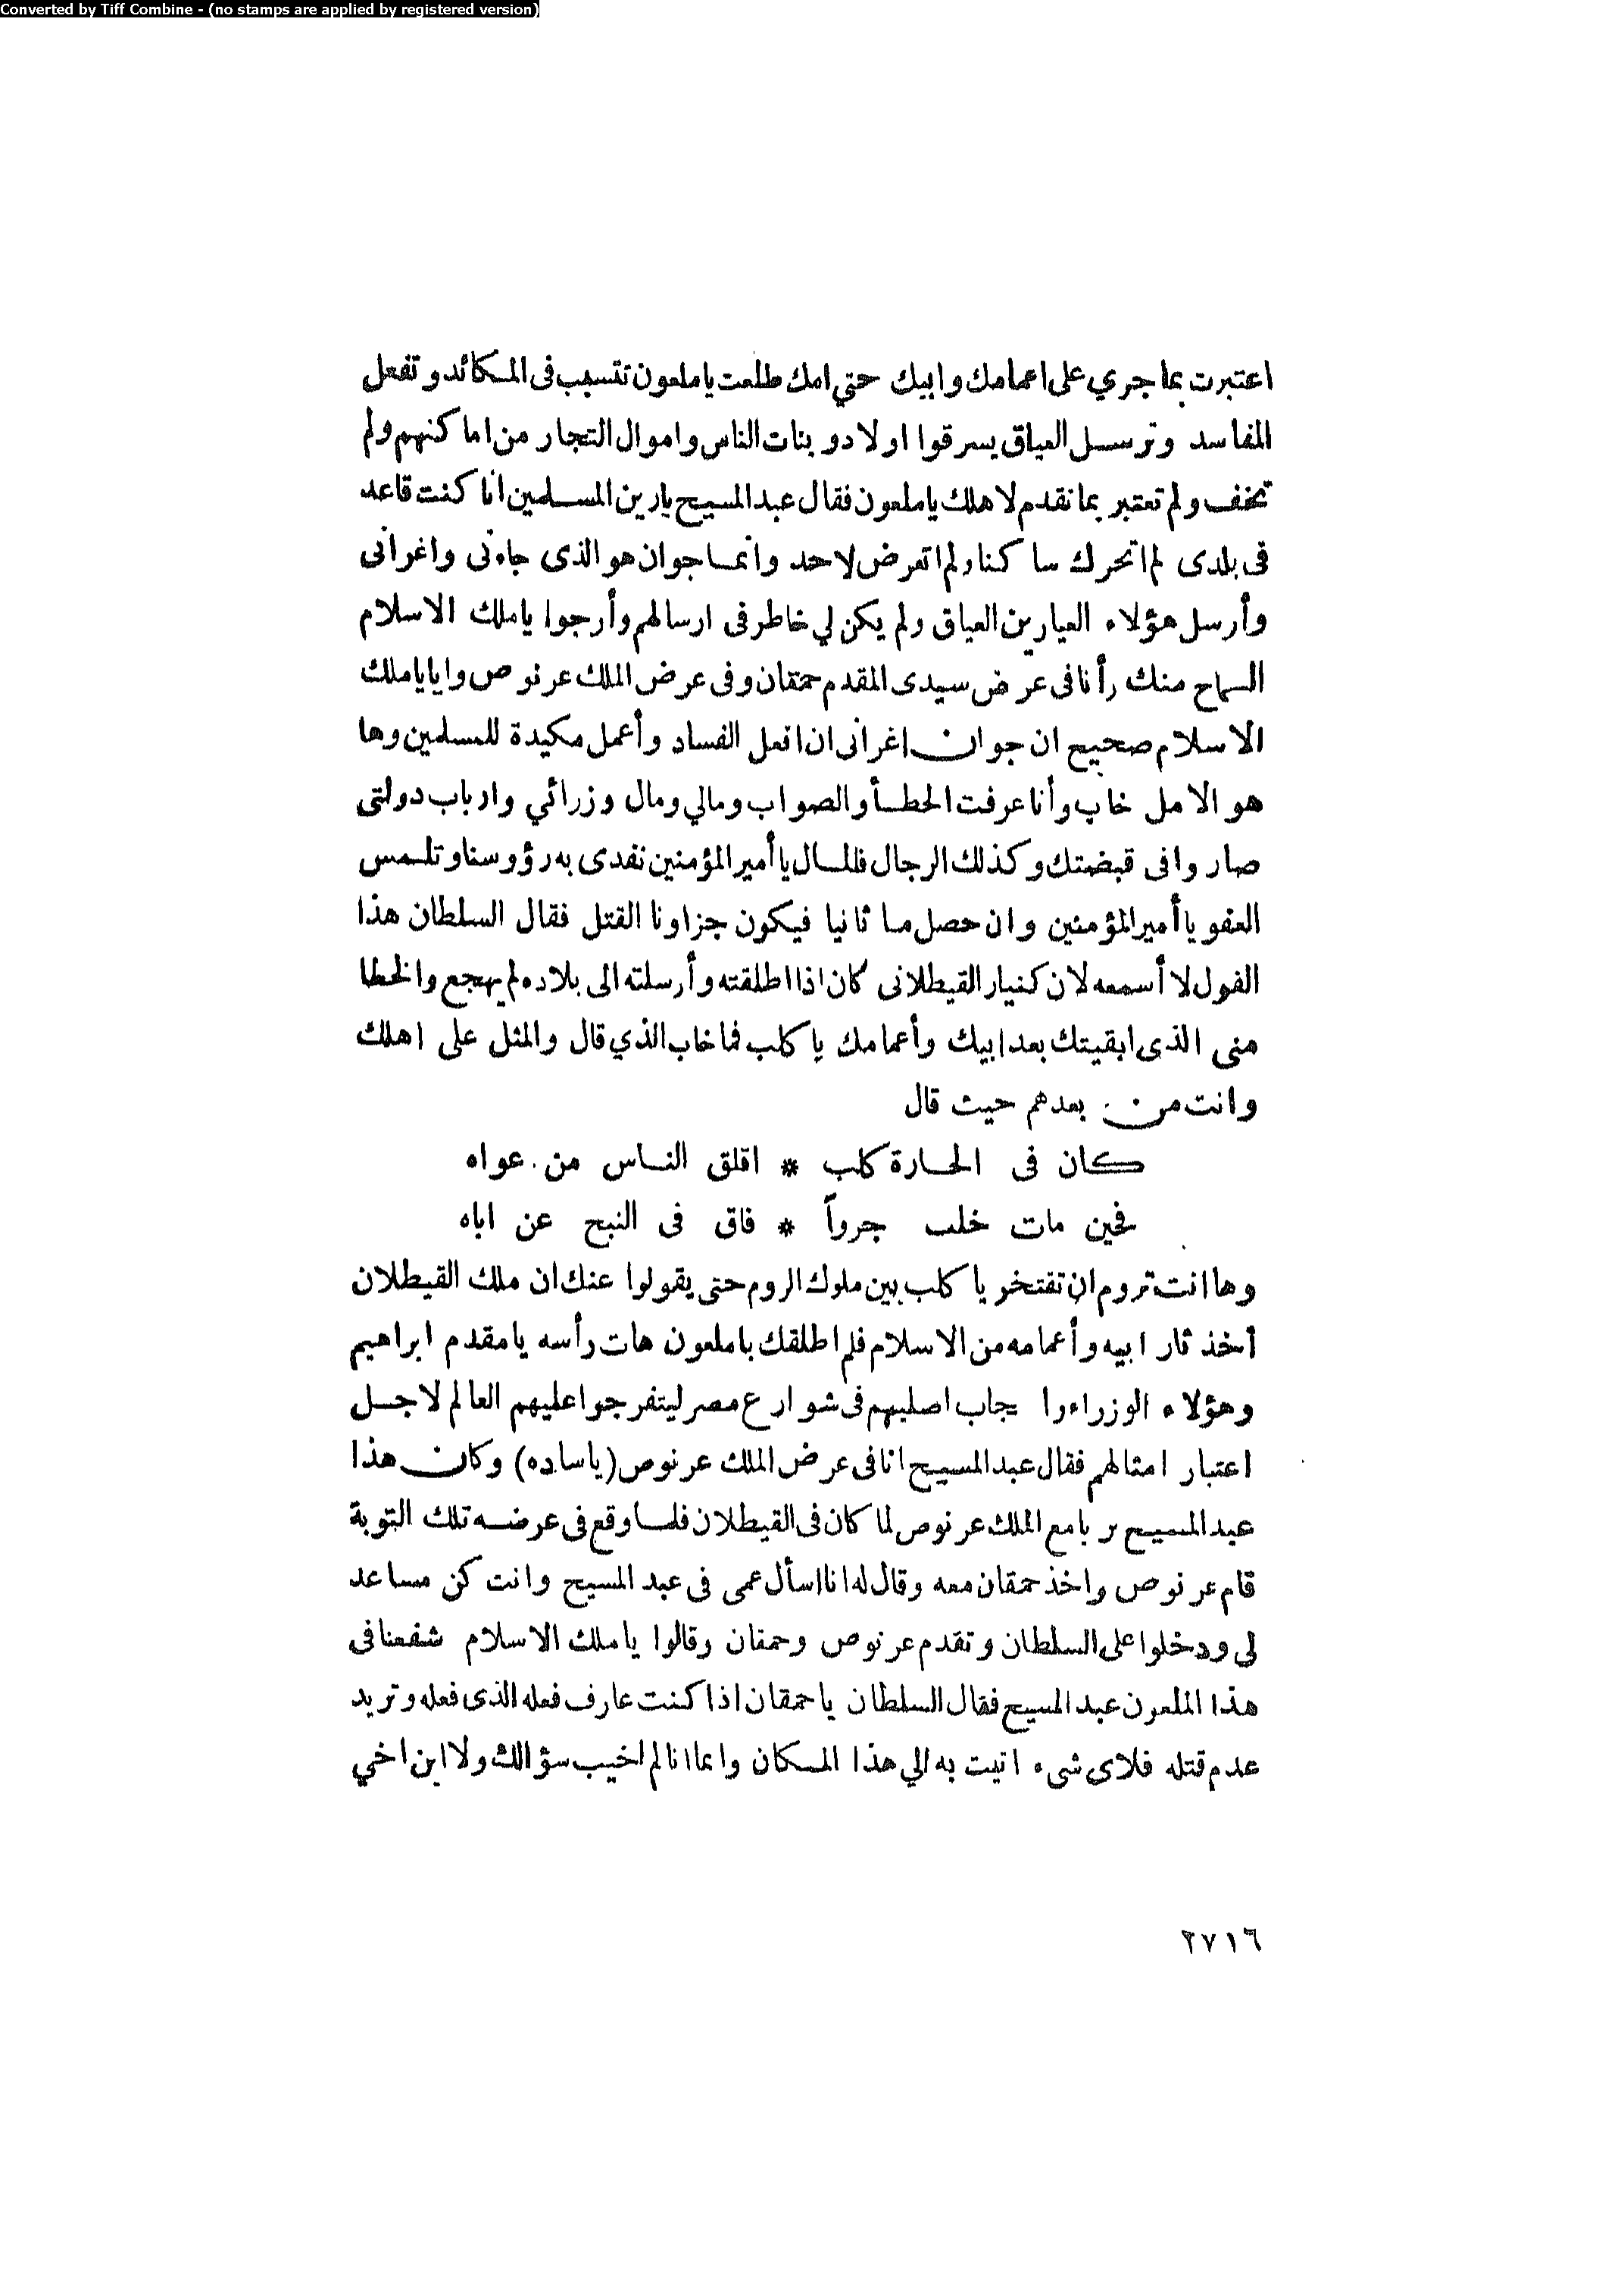 Converted by Tiff Combine - (no stamps are applied by registered version)
اعتبرت بما جري على اعمامك وابيك حتي امك طلعت ياملعون تتسبب فى المكائد وتفعل
المفاسد وترسل العياق يسرقوا اولاد وبنات الناس واموال التجار من اماكنهم ولم
تخف ولم تعتبر بما تقدم لاهلك ياملعون فقال عبد المسيح يارين المسلمين انا كنت قاعد
فى بلدى لم اتحرك ساكنا ولم اتعرض لاحد وانما جوان هو الذى جاءنى واغرانى
وأرسل هؤلاء العيارين العياق ولم يكن لي خاطر فى ارسالهم وأرجوا ياملك الاسلام
السماح منك رأنا فى عرض سيدى المقدم حمقان وفى عرض الملك عرنوص وايا ياملك
الاسلام صحيح ان جوان اغرانى ان افعل الفساد وأعمل مكيدة للمسلمين وها
هو الامل خاب وأنا عرفت الخطأ والصواب ومالي ومال وزرائي وارباب دولتى
صاروا فى قبضتك وكذلك الرجال فالمال ياأمير المؤمنين نفدى به رؤوسنا وتلمس
العفو ياأمير المؤمنين وان حصل ما ثانيا فيكون جزاونا القتل فقال السلطان هذا
القول لا أسمعه لان كنيار القيطلانى كان اذا اطلقته وأرسلته الى بلاده لم يهجع والخطا
منى الذى ابقيتك بعد ابيك وأعمامك يا كلب فما خاب الذي قال والمثل على اهلك
وانت من بعدهم حيث قال
كان فى الحارة كلب * اقلق الناس من عواه
فحين مات خلف جرواً * فاق فى النبح عن اباه
وها انت تروم ان تفتخر يا كلب بين ملوك الروم حتى يقولوا عنك ان ملك القيطلان
أخذ ثار ابيه وأعمامه من الاسلام فلم اطلقك ياملعون هات رأسه يامقدم ابراهيم
وهؤلاء الوزراء را جاب اصلبهم فى شوارع مصر ليتفرجوا عليهم العالم لاجل
اعتبار امثالهم فقال عبد المسيح انا فى عرض الملك عرنوص (ياساده) وكان هذا
عبد المسيح تربا مع الملك عرنوص لما كان فى القيطلان فلما وقع فى عرضه تلك التوبة
قام عرنوص واخذ حمقان معه وقال له انا اسأل عمى فى عبد المسيح وانت كن مساعد
لى ودخلوا على السلطان وتقدم عرنوص وحمقان وقالوا ياملك الاسلام شفعنا فى
هذا الملعون عبد المسيح فقال السلطان ياحمقان اذا كنت عارف فعله الذى فعله وتريد
عدم قتله فلاى شىء اتيت به الي هذا المكان وانما انا لم اخيب سؤالك ولا ابن اخي
٢٧١٦